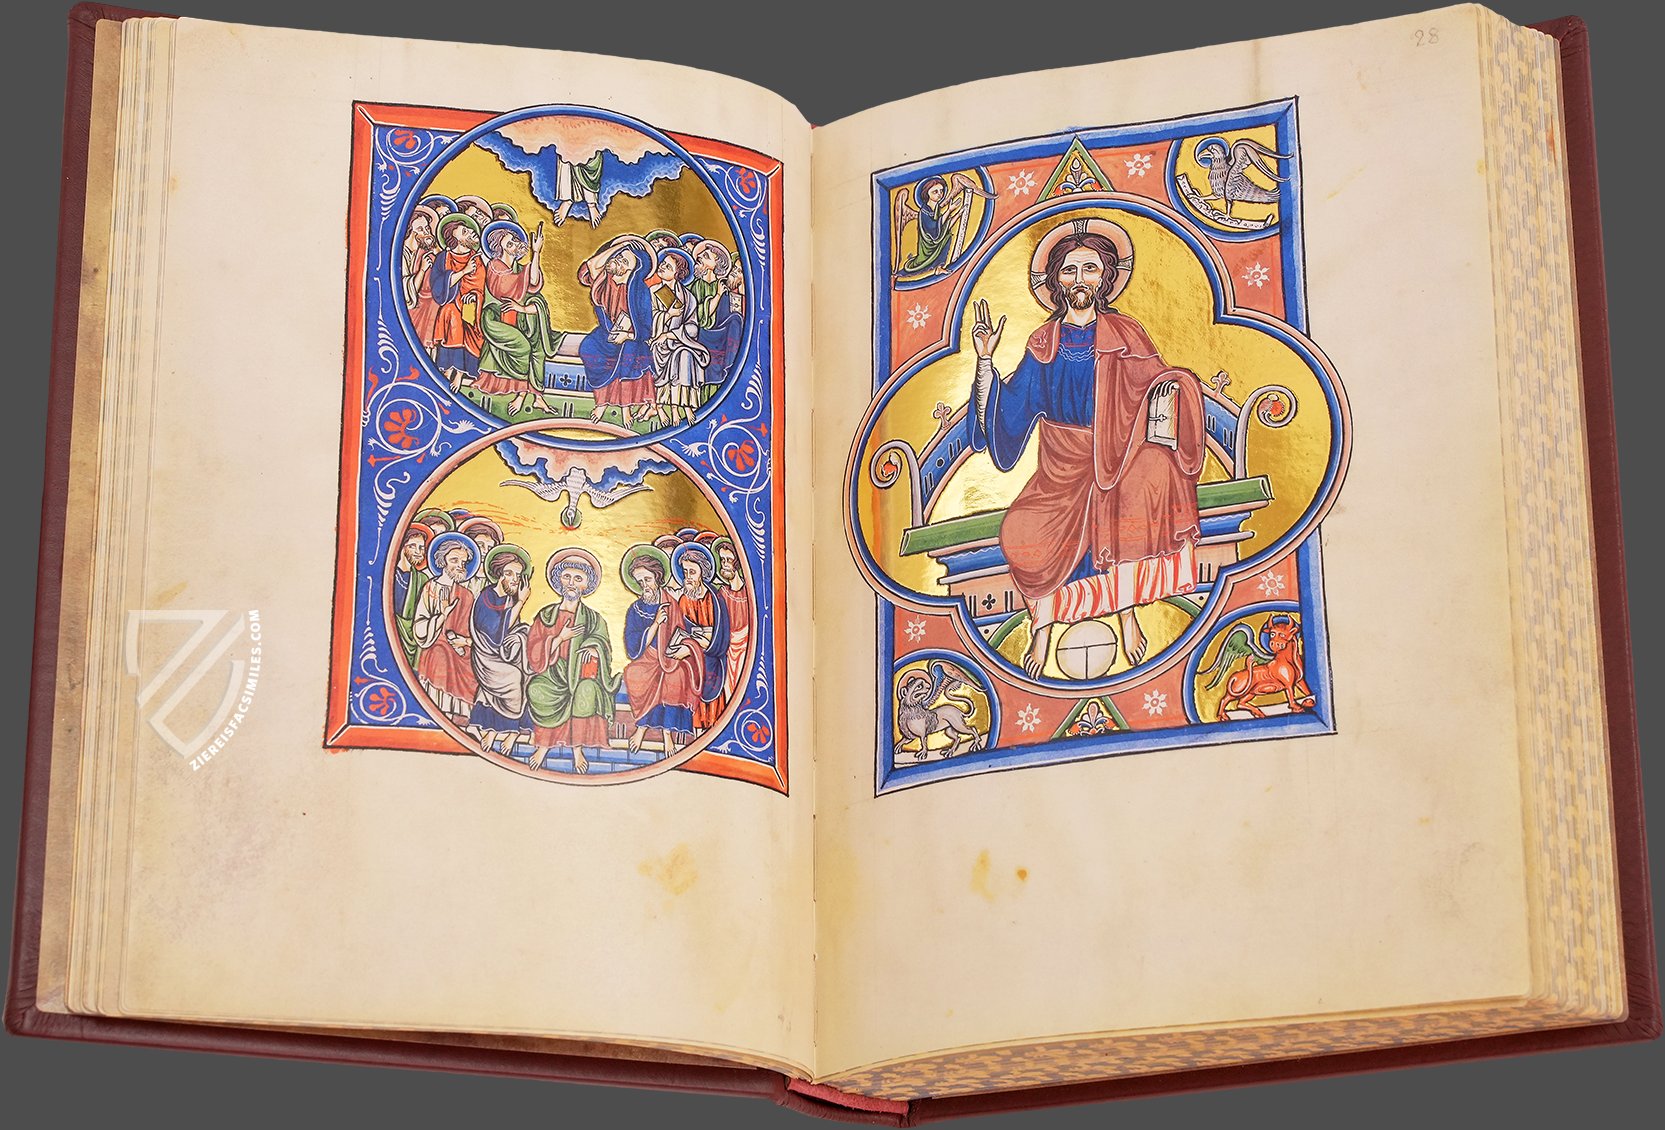 28
ZIEREISFACSIMILES.COM